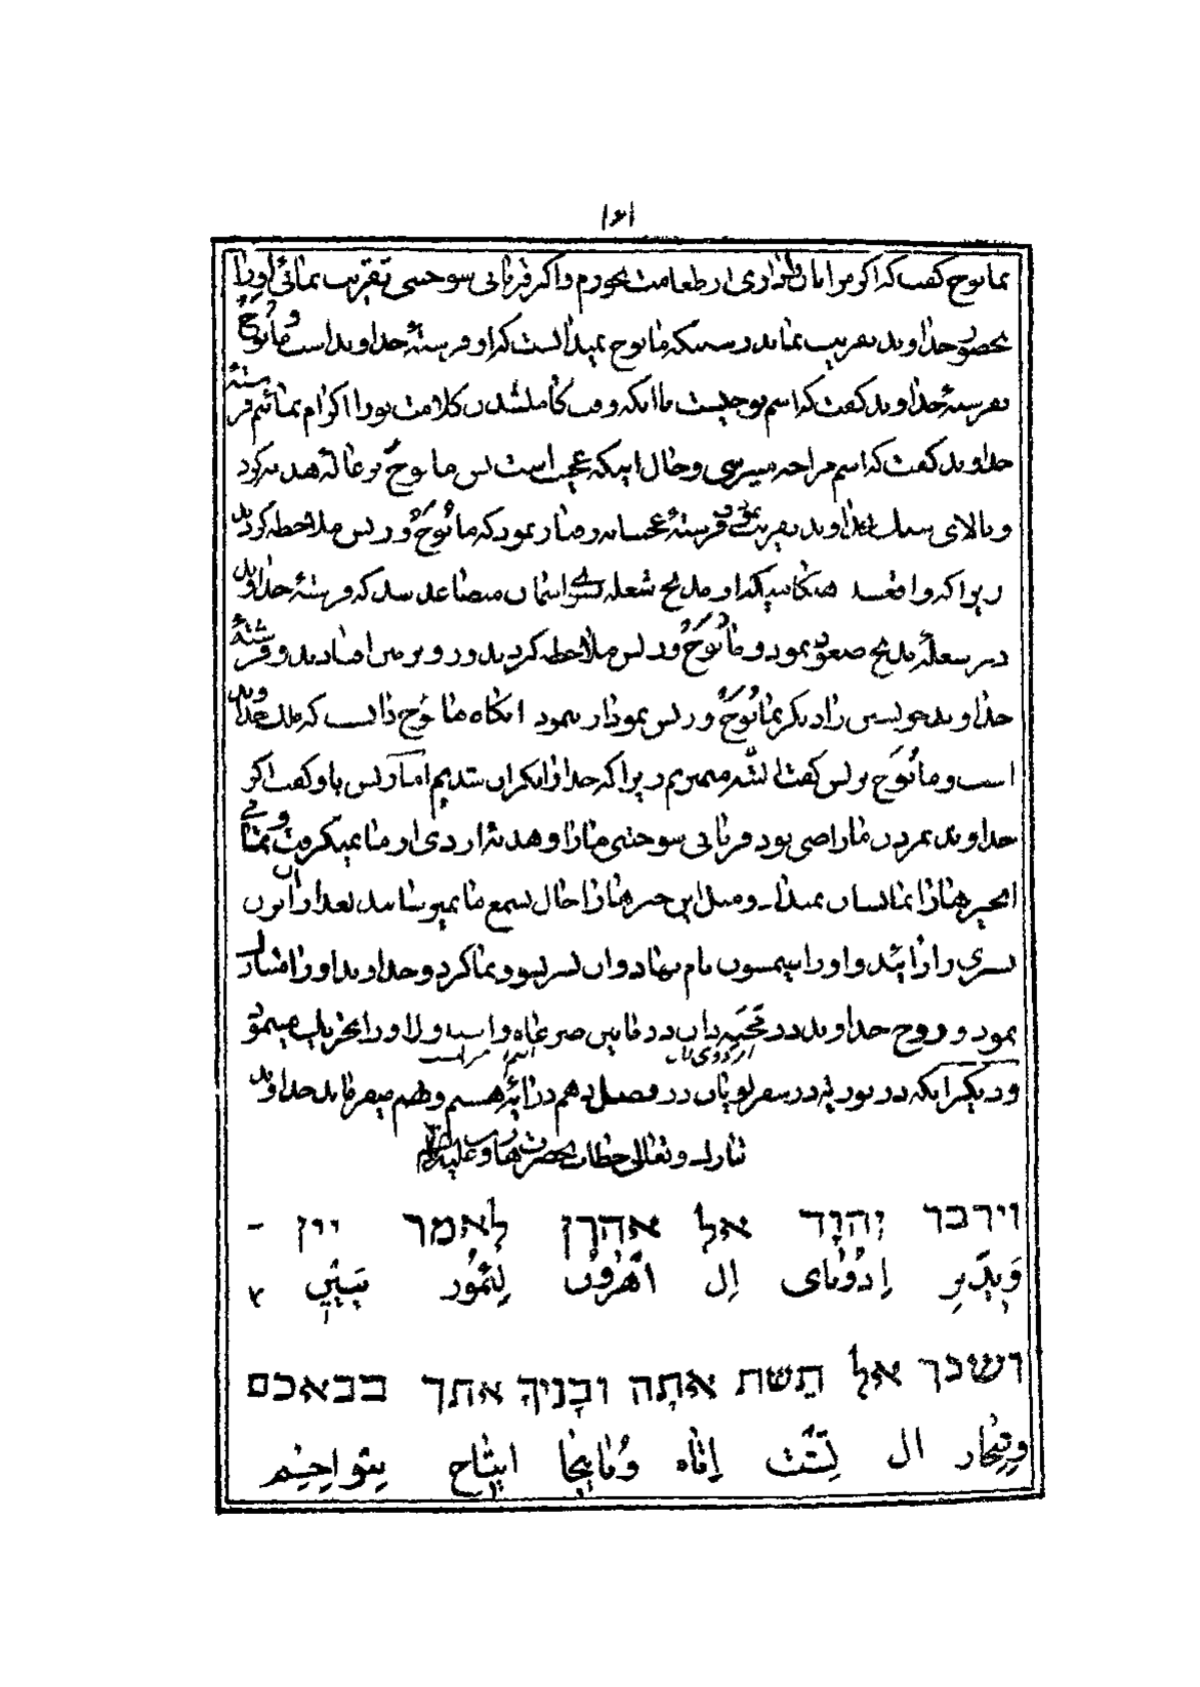 ۱۶۱
بمانوح گفت که اگر مرا باز داری از طعامت نخورم و اگر قربانی سوختنی تقریب نمائی او را
بحضور خداوند تقریب نما بدرستیکه مانوح نمیدانست که او فرستهٔ خداوند است و مانوح
بفرستهٔ خداوند گفت که اسم تو چیست تا اینکه وقت کامل شدن کلامت تو را اکرام نمائیم فرستهٔ
خداوند گفت که اسم مرا چه میپرسی و حال اینکه عجیب است پس مانوح بزغاله هدیه کرد
و بالای سنگ بخداوند تقریب نمود و فرستهٔ عجیبانه رفتار نمود که مانوح و زنش ملاحظه کردند
زیرا که واقع شد هنگامیکه از مذبح شعله بسوی آسمان متصاعد شد که فرشتهٔ خداوند
در شعلهٔ مذبح صعود نمود و مانوح و زنش ملاحظه کردند و رو بزمین افتادند و فرشتهٔ
خداوند خویشتن را دیگر بمانوح و زنش نمودار ننمود آنگاه مانوح دانست که ملک خداوند
است و مانوح بزنش گفت البته میمیریم زیرا که خدا را نگران شدیم اما زنش باو گفت اگر
خداوند بمردن ما راضی بود قربانی سوختنی ما را و هدیه آردی از ما نمیگرفت و تمامی
این چیزها را بما نشان نمیداد و مثل این چیزها را حال بسمع ما نمیرسانید بعد از آن زن
پسری را زائید و او را شمسون نام نهاد و آن پسر نشو و نما کرد و خداوند او را متبارک
نمود و روح خداوند در محنیه دان در مابین صرعاه و اشتاول او را بتحریک مینمود
اردوی دان اسم قریه است
و دیگر اینکه در توریه در سفر لویان در فصل دهم در آیهٔ هشتم و نهم میفرماید خداوند
تبارک و تعالی خطاب بحضرت هارون علیه السلام
וידבר יְהוָֹה אֶל אַהֲרֹן לֵאמֹר יין -
وَيِدَبِّر اِدُوناى اِل اَهَرُون لِئمُور يَيِين ٧
ושכר אל תֵּשְׁתְּ אתָה ובָניךָ אתך בבאכם
وِشِخار ال تِشت اِتاه وُبانِيخا ايتاخ بِبواخِم